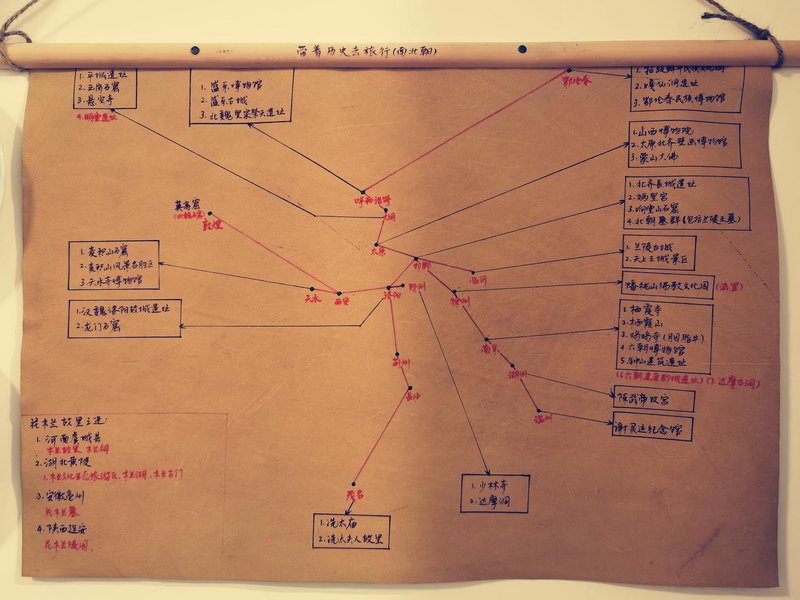 带着历史去旅行(南北朝)
1. 平城遗址
2. 云冈石窟
3. 悬空寺
4. 明堂遗址
1. 盛乐博物馆
2. 盛乐古城
3. 北魏皇家祭天遗址
鄂伦春
2. 嘎仙洞遗址
3. 鄂伦春民族博物馆
1. 山西博物院
2. 太原北齐壁画博物馆
3. 蒙山大佛
呼和浩特
大同
莫高窟
敦煌
太原
1. 北齐长城遗址
2. 娲皇宫
3. 响堂山石窟
4. 北朝墓群(包括兰陵王墓)
1. 麦积山石窟
2. 麦积山风景名胜区
3. 天水市博物馆
邯郸
临沂
1. 兰陵古城
2. 天上王城景区
天水
西安
洛阳
郑州
徐州
蟠桃山佛教文化园
1. 汉魏洛阳故城遗址
2. 龙门石窟
南京
1. 栖霞寺
2. 栖霞山
3. 鸡鸣寺(胭脂井)
4. 六朝博物馆
5. 钟山建筑遗址
(6. 六朝建康都城遗址)(7. 达摩古洞)
荆州
湖州
陈武帝故宫
长沙
温州
谢灵运纪念馆
花木兰故里之迷:
1. 河南虞城县
木兰故里、木兰祠
2. 湖北黄陂
1. 木兰文化生态旅游区、木兰湖、木兰古门
3. 安徽亳州
花木兰墓
4. 陕西延安
花木兰陵园
茂名
1. 冼太庙
2. 冼太夫人故里
1. 少林寺
2. 达摩洞